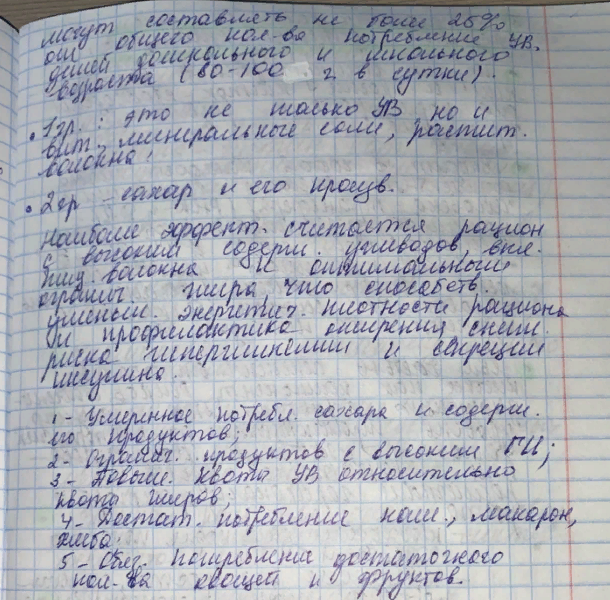 могут составлять не более 25%
от общего кол-ва потребление УВ.
детей дошкольного и школьного
возраста (80-100 г в сутки).
• 1гр.: это не только УВ но и
вит., минеральные соли, растит.
волокна.
• 2гр - сахар и его произв.
Наиболее эффект. считается рацион
с высоким содерж. углеводов, вкл.
пищ. волокна и оптимальным
огранич. жира, что способств.
уменьш. энергетич. плотности рациона
и профилактика ожирения, сниж.
риска гипергликемии и секреции
инсулина.
1- Умеренное потребл. сахара и содерж.
его продуктов;
2- Огранич. продуктов с высоким ГИ;
3 - Повыш. квоты УВ относительно
квоты жиров;
4 - Достат. потребление каши, макарон,
хлеба;
5 - Обяз. потребление достаточного
кол-ва овощей и фруктов.